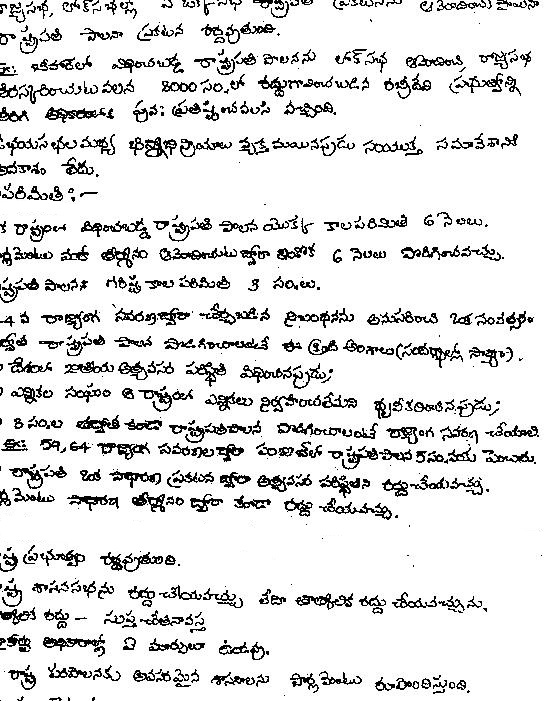 రాజ్యసభ, లోక్ సభల్లు ఏ ఒక్క సభ రాష్ట్రపతి ప్రకటనను ఆమోదించక పోయినా
రాష్ట్రపతి పాలనా ప్రకటన రద్దవుతుంది.
Ex: బీహార్‌లో విధించబడ్డ రాష్ట్రపతి పాలనను లోక్ సభ ఆమోదించి రాజ్యసభ
తిరస్కరించుట వలన సం.లో రద్దుగావించబడిన రబ్రీదేవి ప్రభుత్వాన్ని
తిరిగి అధికారంలోకి పునః ప్రతిష్టించవలసి వచ్చింది.
ఉభయసభల మధ్య భిన్నాభిప్రాయాలు వ్యక్తమయినపుడు సంయుక్త సమావేశానికి
అవకాశం లేదు.
పరిమితి :-
రాష్ట్రంలో విధించబడ్డ రాష్ట్రపతి పాలన యొక్క కాలపరిమితి 6 నెలలు.
పార్లమెంటు మరో తీర్మానం ఆమోదించుట ద్వారా ఇంకొక 6 నెలలు పొడిగించవచ్చు.
రాష్ట్రపతి పాలన గరిష్ట కాల పరిమితి 3 సం.లు.
4 వ రాజ్యాంగ సవరణ ద్వారా చేర్చబడిన నిబంధనను అనుసరించి ఒక సంవత్సరం
తర్వాత రాష్ట్రపతి పాలన పొడిగించాలంటే ఈ క్రింది అంశాలు
దేశంలో జాతీయ అత్యవసర పరిస్థితి విధించినప్పుడు;
ఎన్నికల సంఘం ఆ రాష్ట్రంలో ఎన్నికలు నిర్వహించలేమని ధృవీకరించినప్పుడు;
3 సం.ల తర్వాత కూడా రాష్ట్రపతిపాలన పొడిగించాలంటే రాజ్యాంగ సవరణ చేయాలి
Ex: 59, 64 రాజ్యాంగ సవరణల ద్వారా పంజాబ్‌లో రాష్ట్రపతిపాలన 5 సం. పెంచారు.
రాష్ట్రపతి ఒక సాధారణ ప్రకటన ద్వారా అత్యవసర పరిస్థితిని రద్దు చేయవచ్చు.
పార్లమెంటు సాధారణ తీర్మానం ద్వారా కూడా రద్దు చేయవచ్చు.
రాష్ట్ర ప్రభుత్వం రద్దవుతుంది.
రాష్ట్ర శాసనసభను రద్దు చేయవచ్చు లేదా తాత్కాలిక రద్దు చేయవచ్చును.
తాత్కాలిక రద్దు - సుప్త చేతనావస్థ
హైకోర్టు అధికారాల్లో ఏ మార్పులు ఉండవు.
రాష్ట్ర పరిపాలనకు అవసరమైన శాసనాలను పార్లమెంటు రూపొందిస్తుంది.